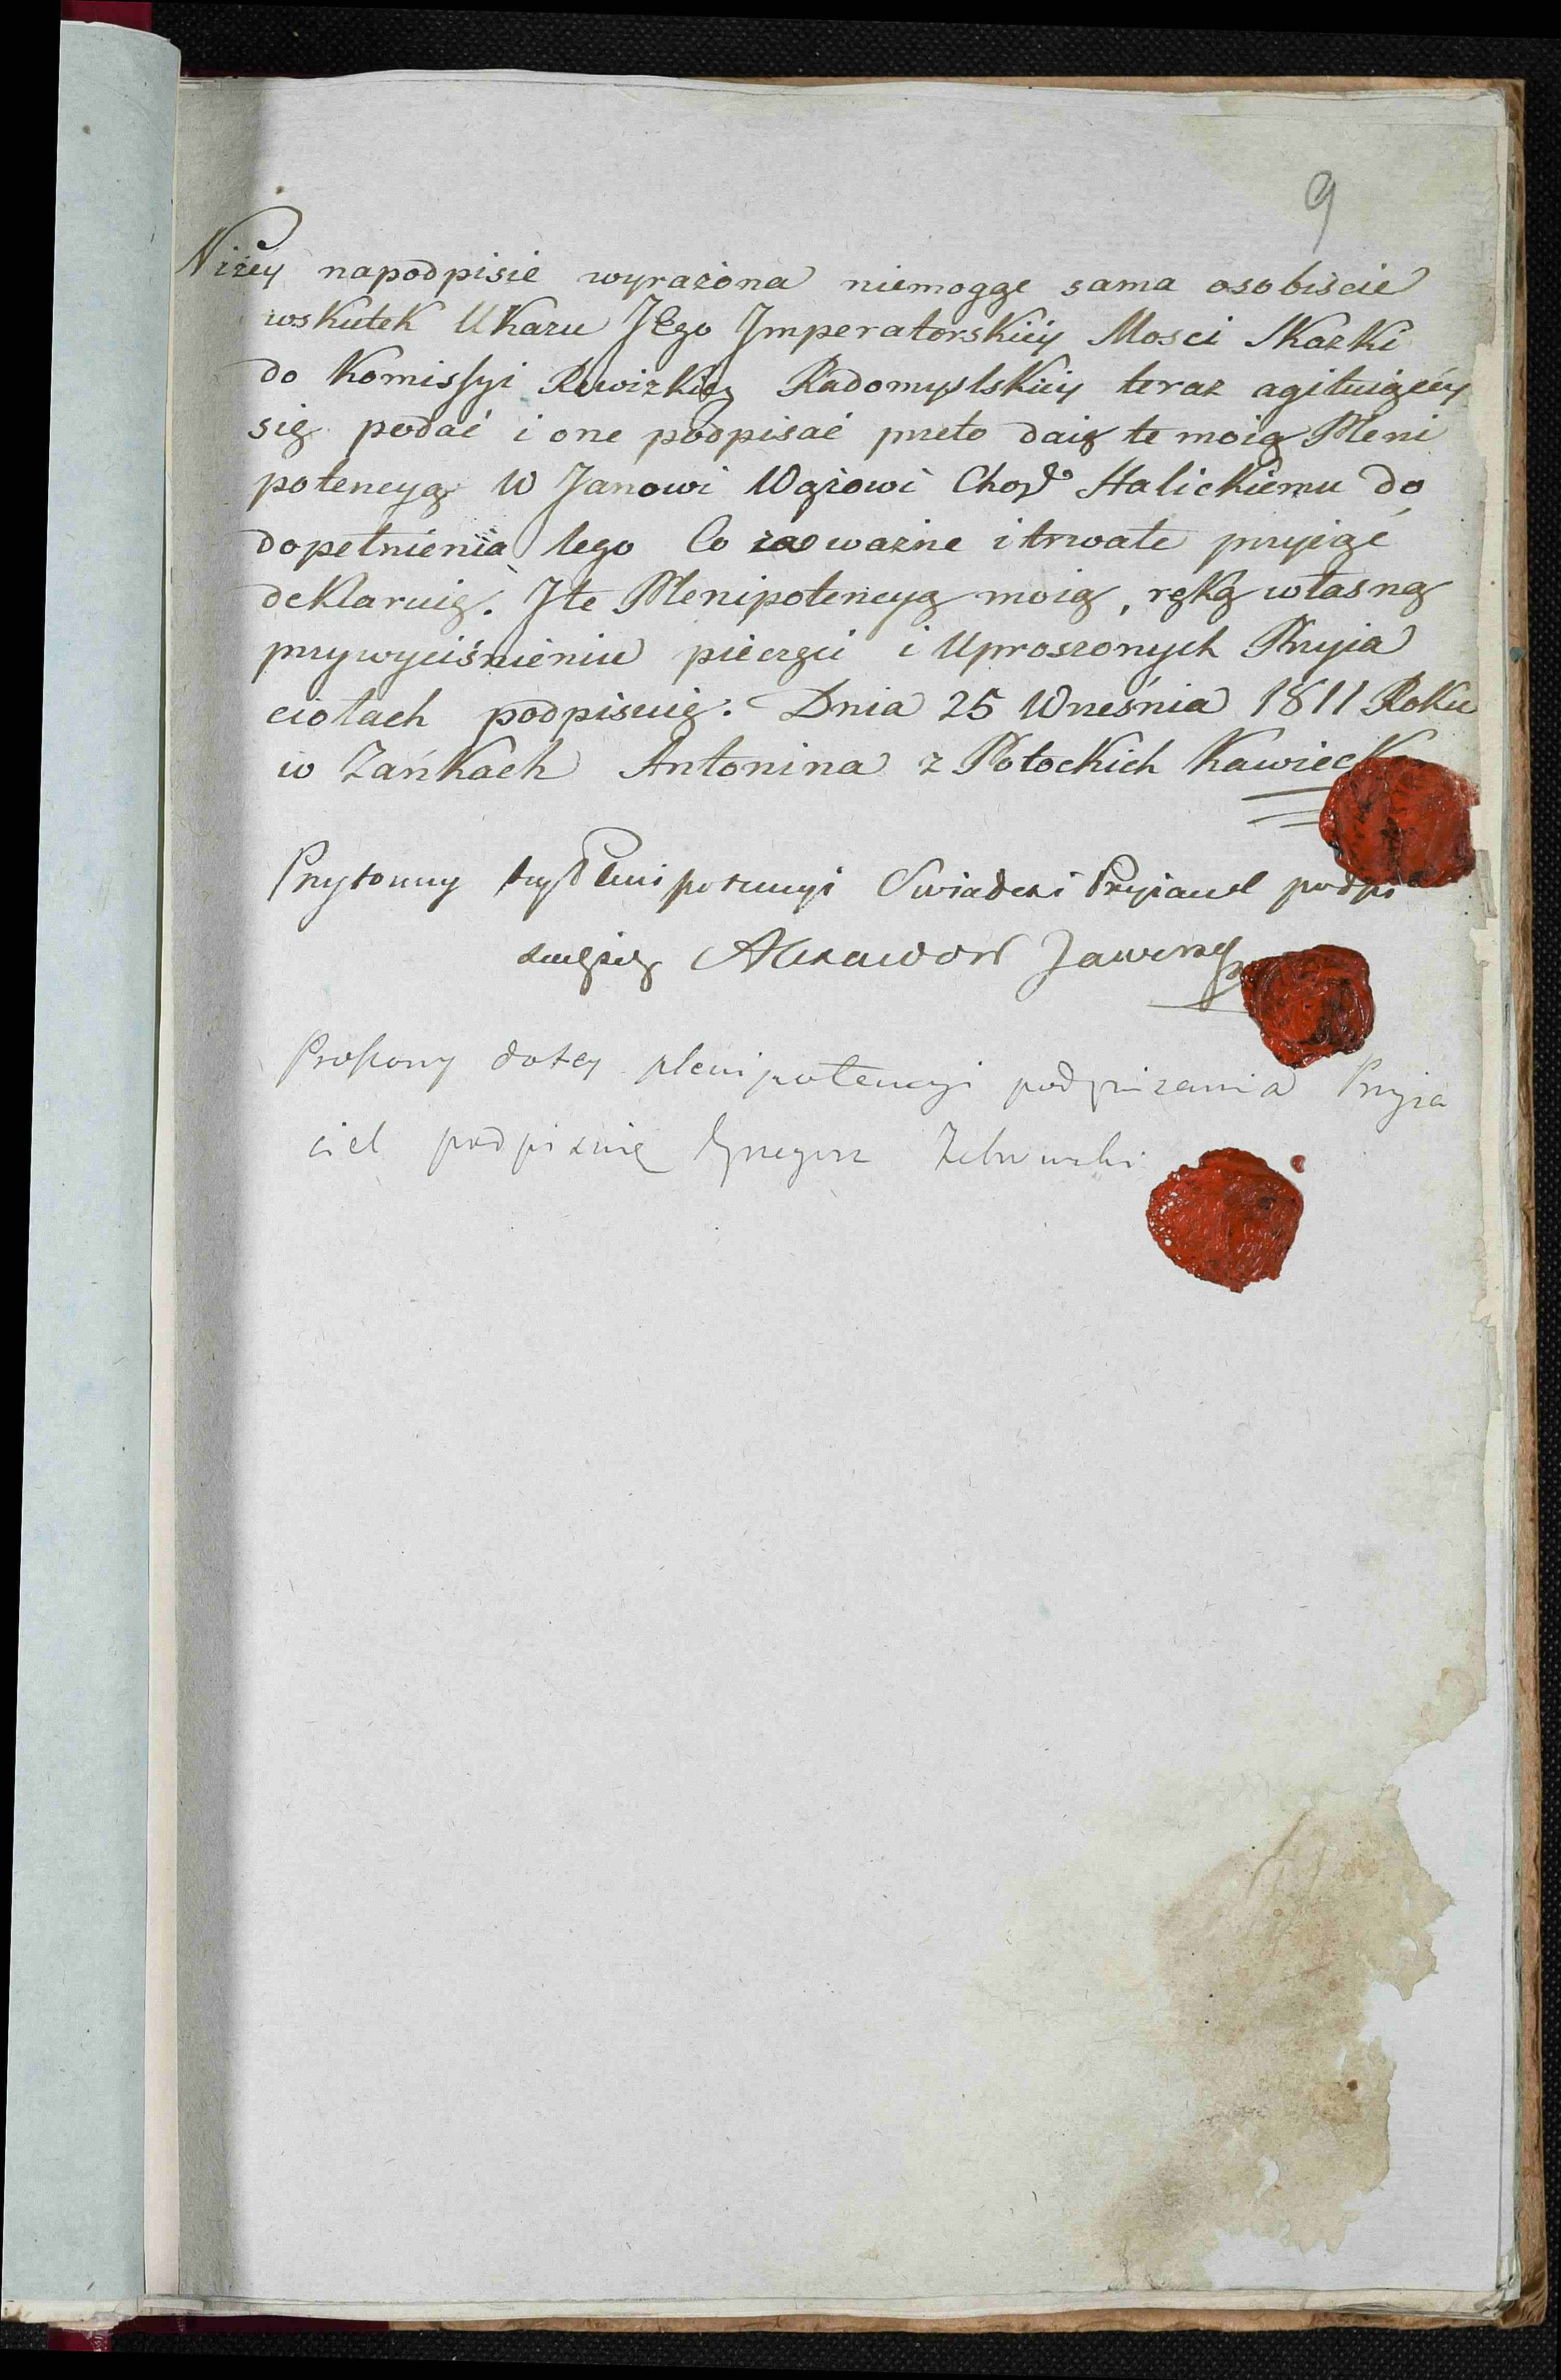 9
Niżey napodpisie wyrażona niemogąc sama osobiście
wskutek Ukazu JEgo Jmperatorskiéy Mosci Skazki
do Komissyi Rewizkiey Radomyslskiéy teraz agituiącéy
się podać i one podpisać przeto daię te moią Pleni
potencyą W Janowi Wążowi Chor<sup>o</sup> Halickiemu do
dopełnienia tego Co za ważne i trwałe przyiąć
deklaruię. J te Plenipotencyą moią, ręką własną
przy wyciśnieniu pieczęci i Uproszonych Przyia
ciołach podpisuię: Dnia 25 Września 1811 Roku
w Zańkach Antonina z Potockich Kawiecka
Przytomny tey Plenipotencyi Swiadczi Przyiaciel podpi
suię się Alexander Jawors
Proszony do tey plenipotencyi podpisania Przyia
ciel podpisuię Grzegorz